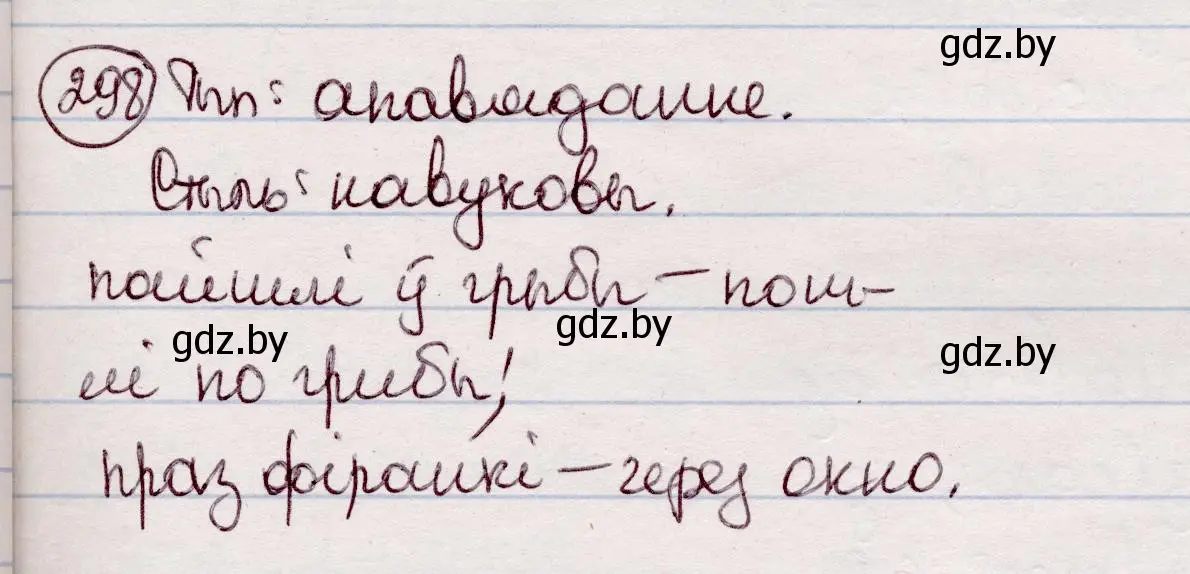 gdz.by
298 Тып: апавяданне.
Стыль: навуковы.
пайшлі ў грыбы – пош-
gdz.by gdz.by gdz.by
лі по грибы;
праз фіранкі – через окно.